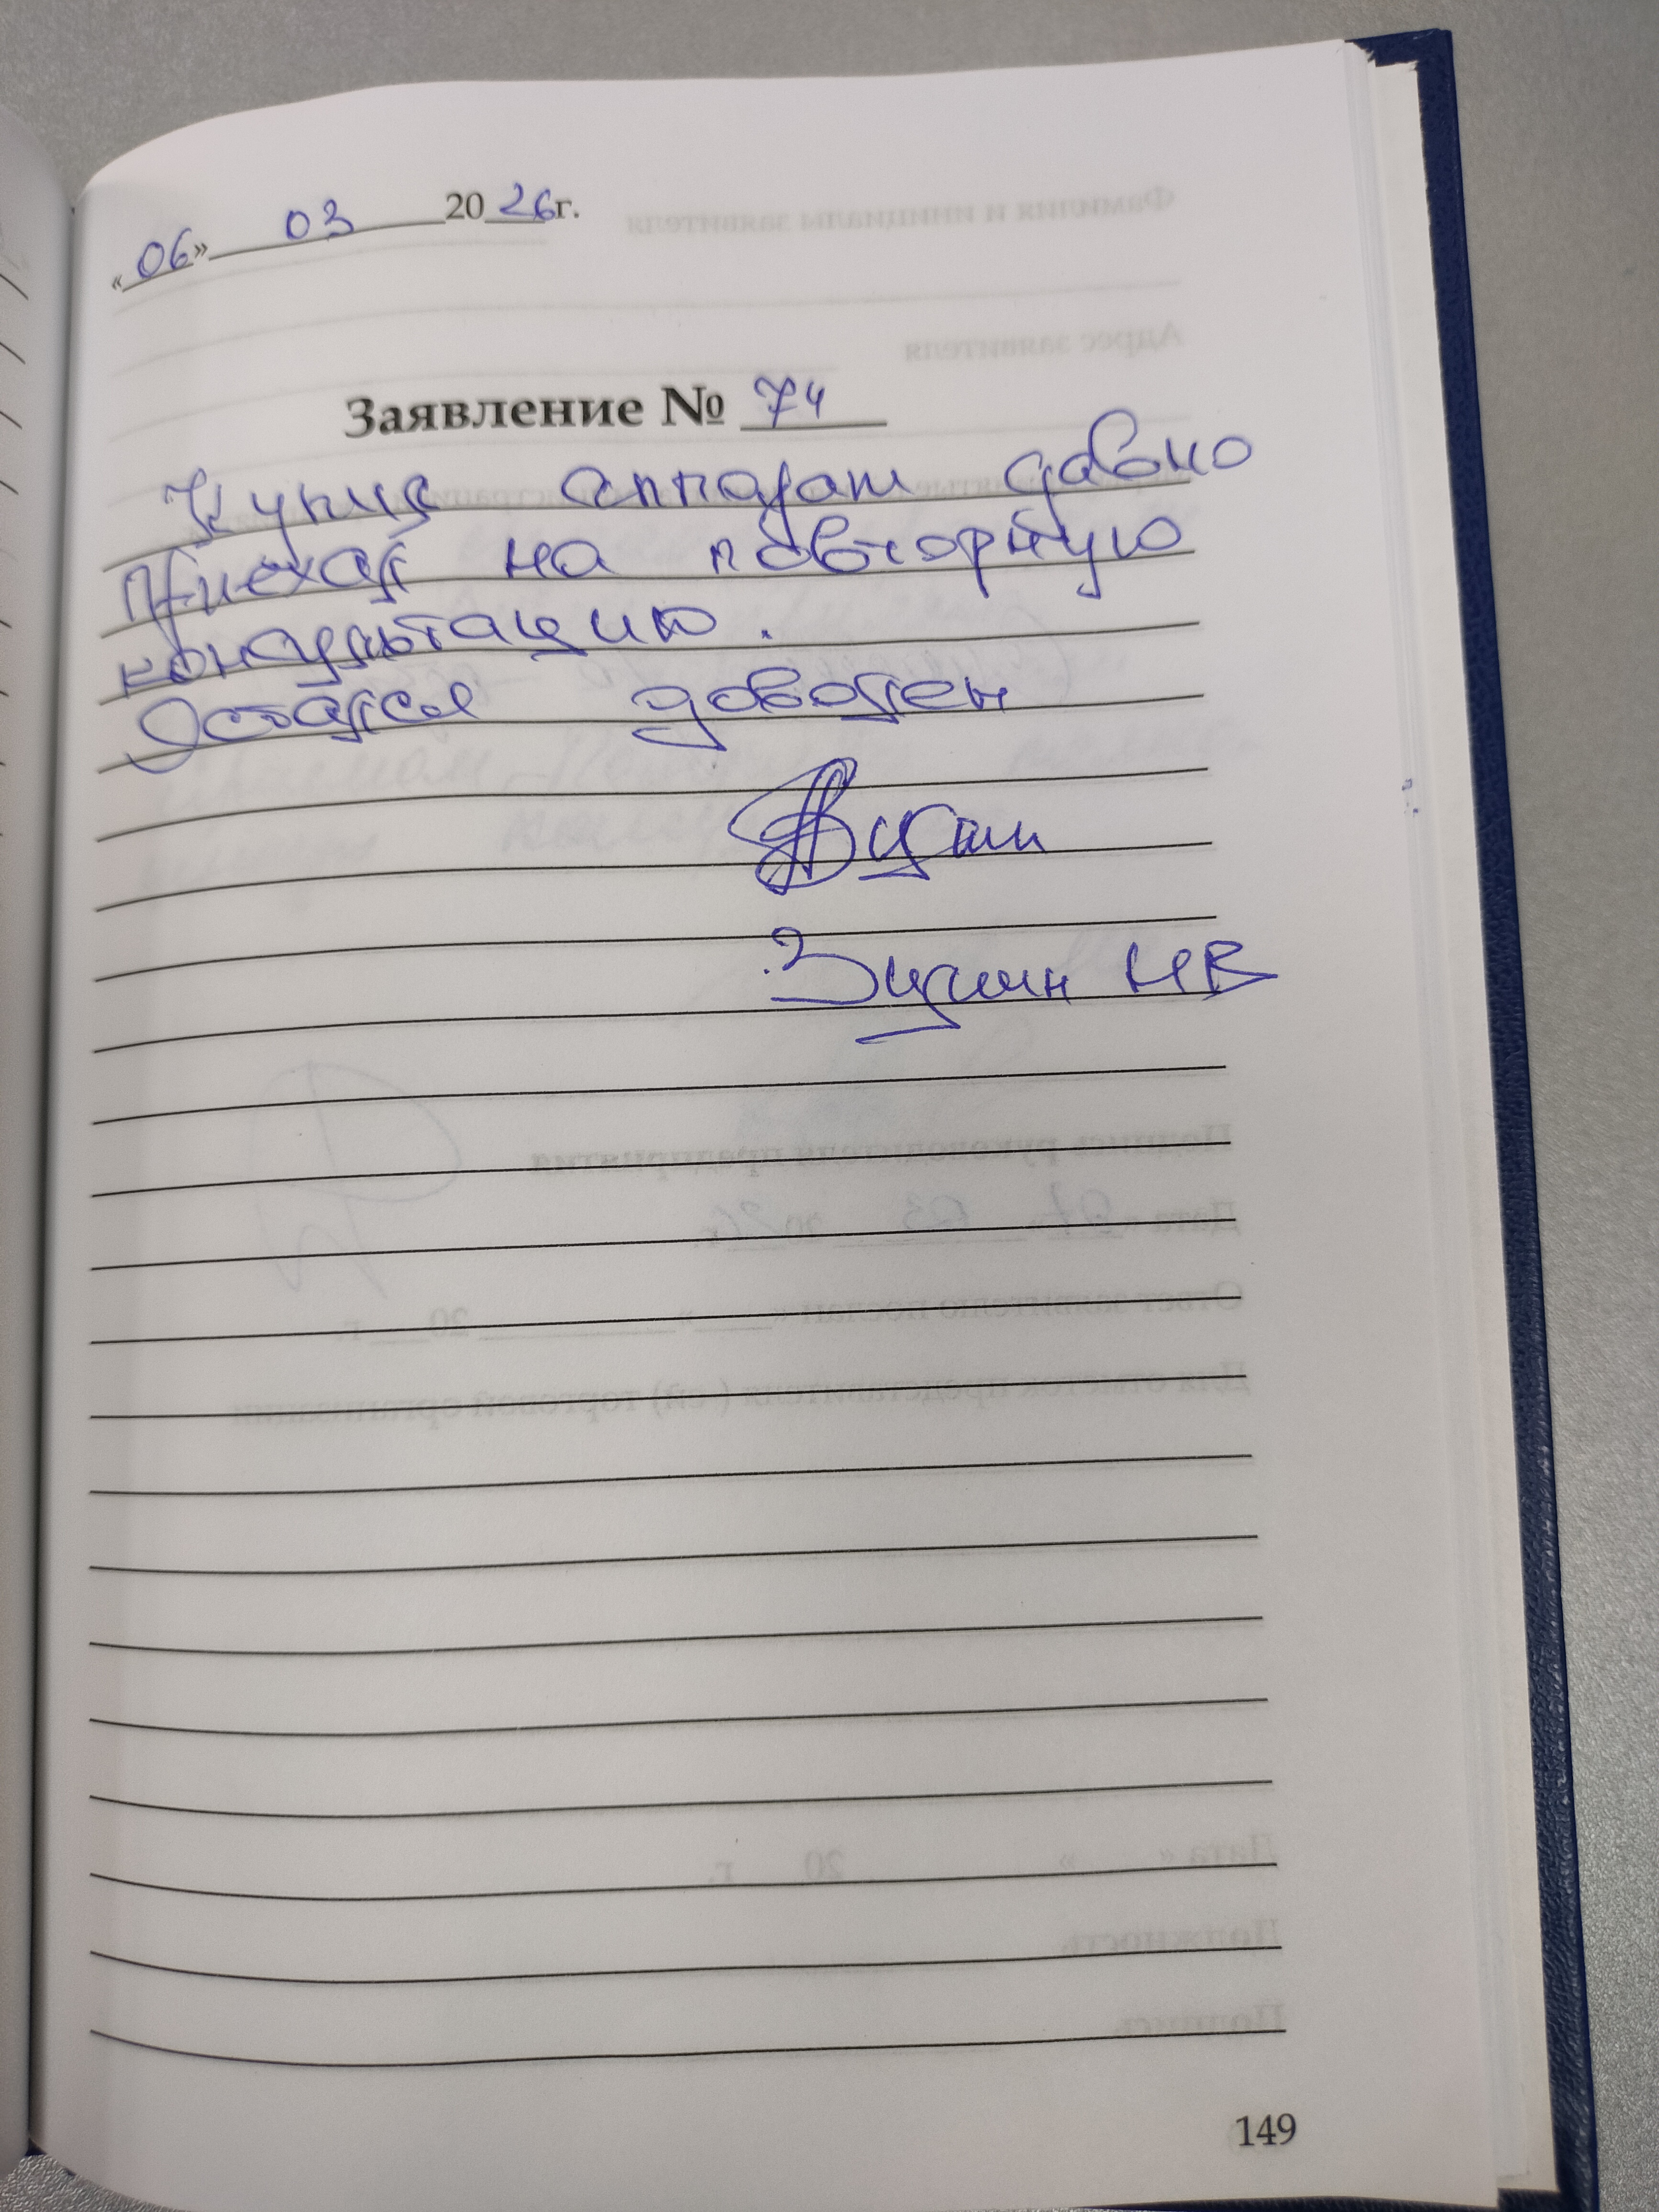 «06» 03 2026г.
Заявление № 74
Купил аппарат давно
Приехал на повторную
консультацию.
Остался доволен
НВ
149